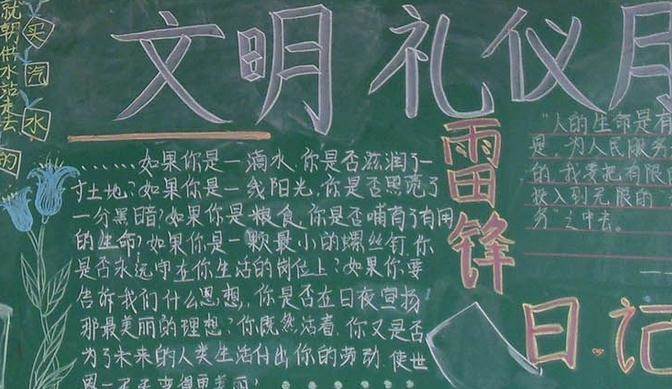 文明礼仪月
就朝供水站走去
买汽水
的
……如果你是一滴水,你是否滋润了一
寸土地?如果你是一线阳光,你是否照亮了
一分黑暗?如果你是粮食,你是否哺育了有用
的生命?如果你是一颗最小的螺丝钉,你
是否永远守在你生活的岗位上?如果你要
告诉我们什么思想,你是否在日夜宣扬
那最美丽的理想?你既然活着,你又是否
为了未来的人类生活付出你的劳动,使世
界一天天变得更美丽?
雷锋
日记
"人的生命是有
是,为人民服务
的,我要把有限的
投入到无限的
务"之中去。